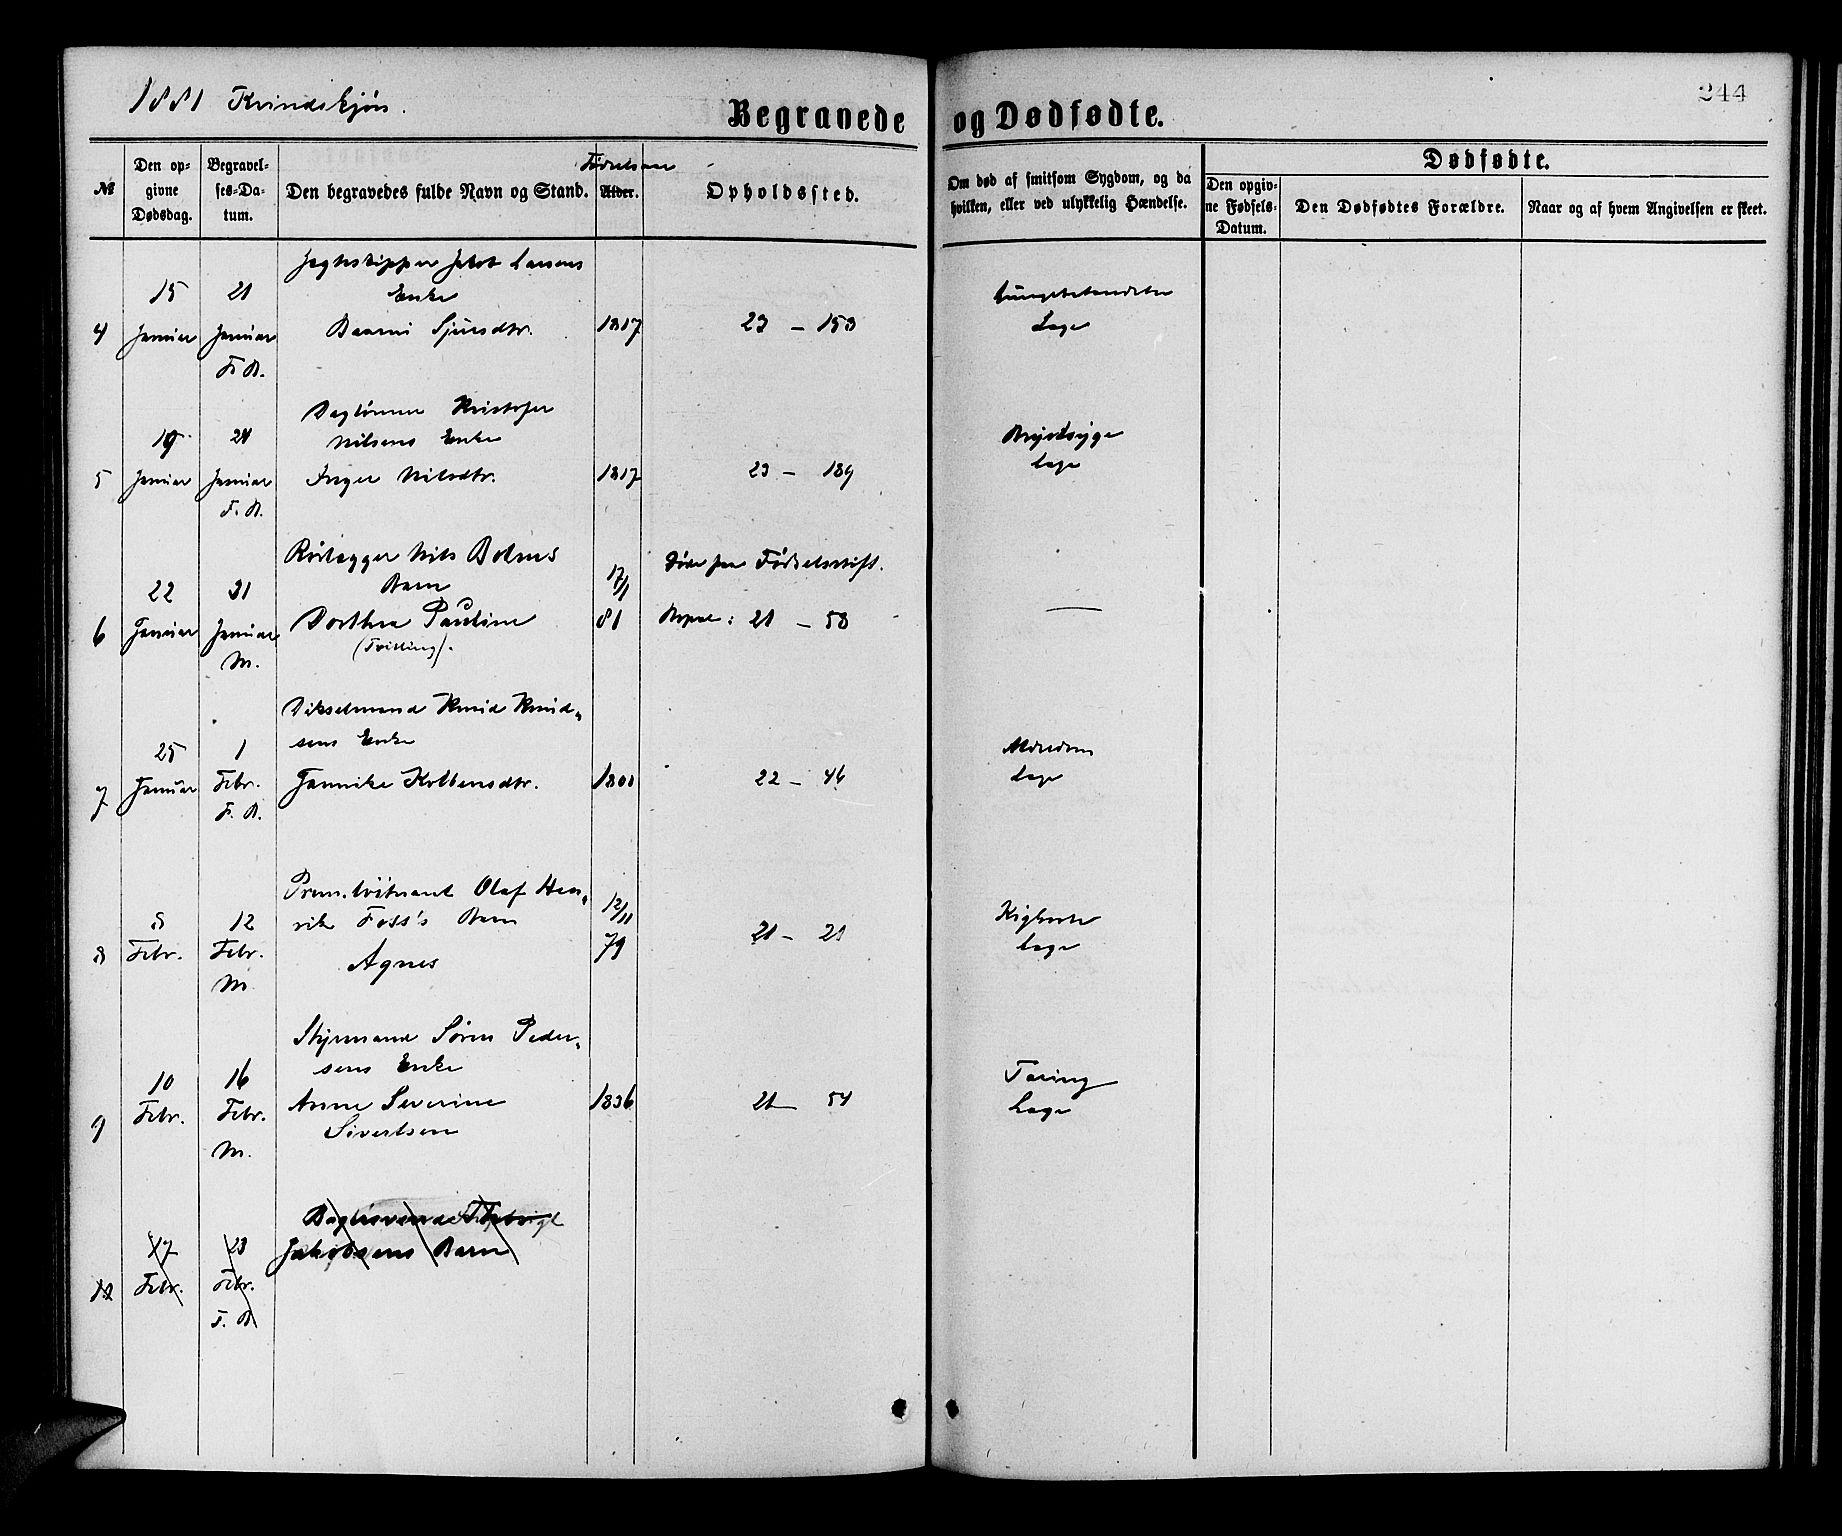 1881 Kvindekjøn.
244
Begravede og Dødfødte.
№
Den op-
givne
Dødsdag.
Begravel-
ses-Da-
tum.
Den begravedes fulde Navn og Stand.
Fødselsaar
Alder.
Opholdssted.
Om død af smitsom Sygdom, og da
hvilken, eller ved ulykkelig Hændelse.
Dødfødte.
Den opgiv-
ne Fødsels-
Datum.
Den Dødfødtes Forældre.
Naar og af hvem Angivelsen er skeet.
4
15
Januar
21
Januar
F. B.
Jagteskipper Jakob Larsens
Enke
Sjursdtr.
1817
23 — 153
Lungebetændelse
Læge
5
19
Januar
24
Januar
F. B.
Daglønner Kristofer
Nilsens Enke
Inger Nilsdtr.
1817
23 — 189
Brystsyge
Læge
6
22
Januar
31
Januar
M.
Rørlægger Nils
Barn
Dorthea Pauline
(Tvilling).
17/1
81
Døde paa Fødselsstift.
Bopæl: 21 — 58
—
7
25
Januar
1
Febr.
F. B.
Vikselmand Knud Knud-
sens Enke
Jannike Kolbensdtr.
1800
22 — 46
Alderdom
Læge
8
8
Febr.
12
Febr.
M.
Prem.løitnant Olaf Hen-
rik Foss's Barn
Agnes
12/11
79
21 — 21
Kighoste
Læge
9
10
Febr.
16
Febr.
M.
Styrmand Søren Peder-
sens Enke
Anne Severine
Sivertsen
1836
21 — 54
Tæring
Læge
10
17
Febr.
23
Febr.
F. B.
Jakobsens Barn